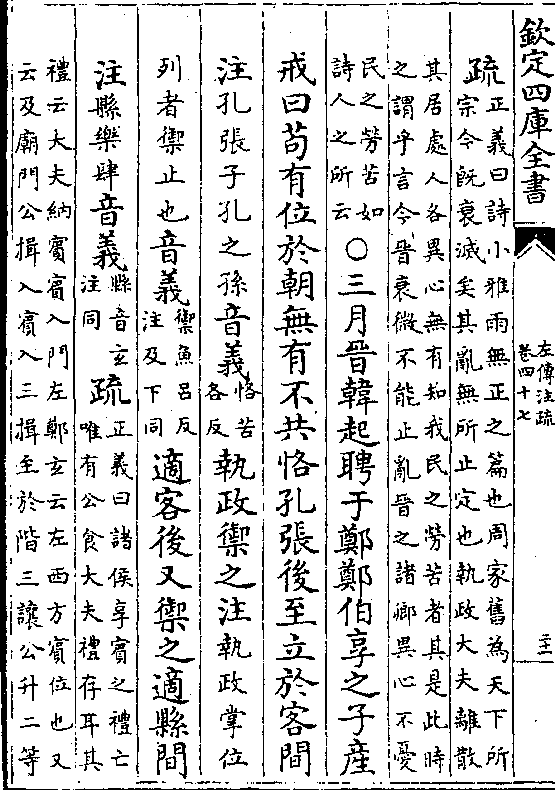 欽定四庫全書
左傳注疏
卷四十七
二十一
疏正義曰詩小雅雨無正之篇也周家舊為天下所
宗今既衰滅矣其亂無所止定也執政大夫離散
其居處人各異心無有知我民之勞苦者其是此時
之謂乎言今晉衰微不能止亂晉之諸卿異心不憂
民之勞苦如
詩人之所云
○三月晉韓起聘于鄭鄭伯享之子產
戒曰苟有位於朝無有不共恪孔張後至立於客間
注孔張子孔之孫音義恪苦
各反
執政禦之注執政掌位
列者禦止也音義禦魚呂反
注及下同
適客後又禦之適縣間
注縣樂肆音義縣音玄
注同
疏正義曰諸侯享賓之禮亡
唯有公食大夫禮存耳其
禮云大夫納賓賓入門左鄭玄云左西方賓位也又
云及廟門公揖入賓入三揖至於階三讓公升二等